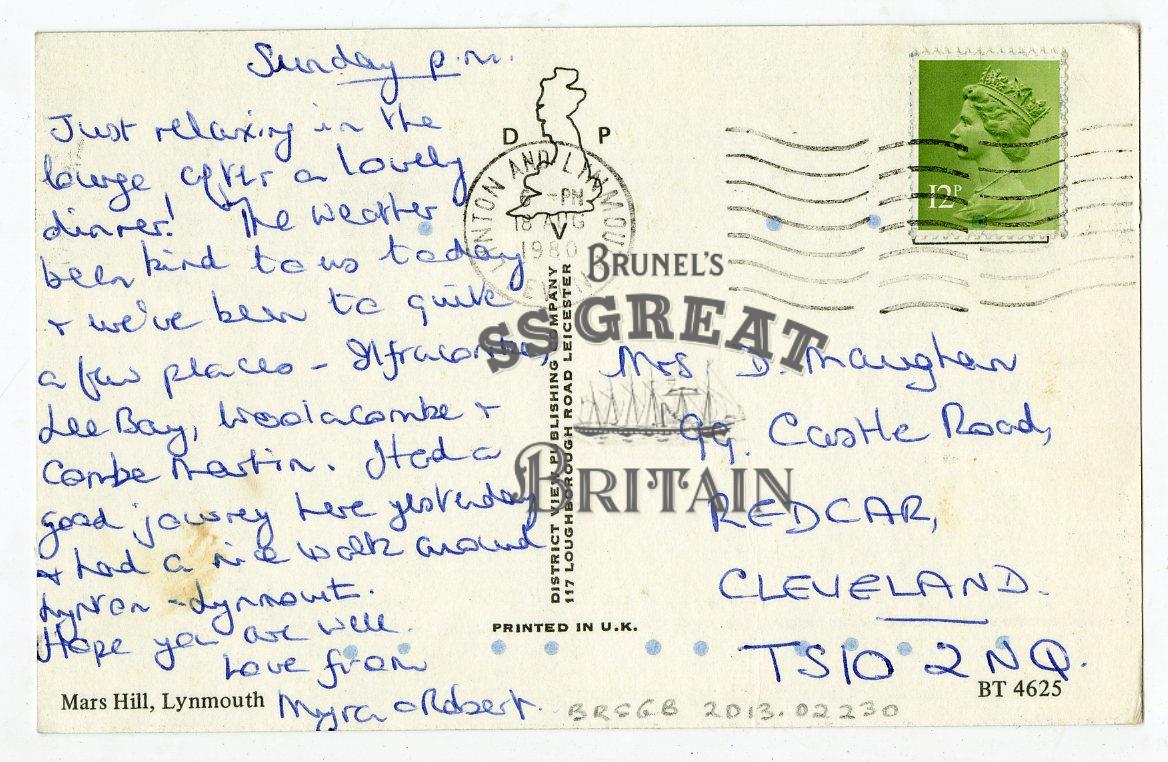 Sunday p.m.
Just relaxing in the
lounge after a lovely
dinner! The weather
been kind to us today
+ we've been to quite
a few places - Ilfracombe,
Lee Bay, Woolacombe +
Combe Martin. Had a
good journey here yesterday
+ had a nice walk around
Lynton - Lynmouth.
Hope you are well.
Love from
Myra & Robert.
Mars Hill, Lynmouth
D P
LYNTON AND LYNMOUTH
-PM
18 AUG
1980
DISTRICT VIEW PUBLISHING COMPANY
117 LOUGHBOROUGH ROAD LEICESTER
PRINTED IN U.K.
12P
BRUNEL'S
SS GREAT
BRITAIN
Mrs D. Maughan
99. Castle Road,
REDCAR,
CLEVELAND.
TS10 2NQ.
BT 4625
BRSGB 2013.02230